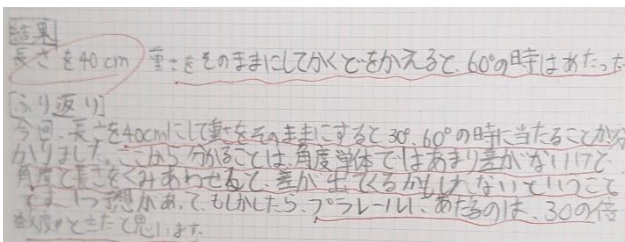 [結果]
長さを40cm 重さをそのままにしてかくどをかえると、60°の時はあたった
[ふり返り]
今回、長さを40cmにして重さをそのままにすると30°、60°の時に当たることが分
かりました。ここから分かることは、角度単体ではあまり差がないけど、
角度と長さをくみあわせると、差が出てくるかもしれないということ
です。1つ予想があって、もしかしたら、プラレールに、あたるのは、30の倍
だと思います。